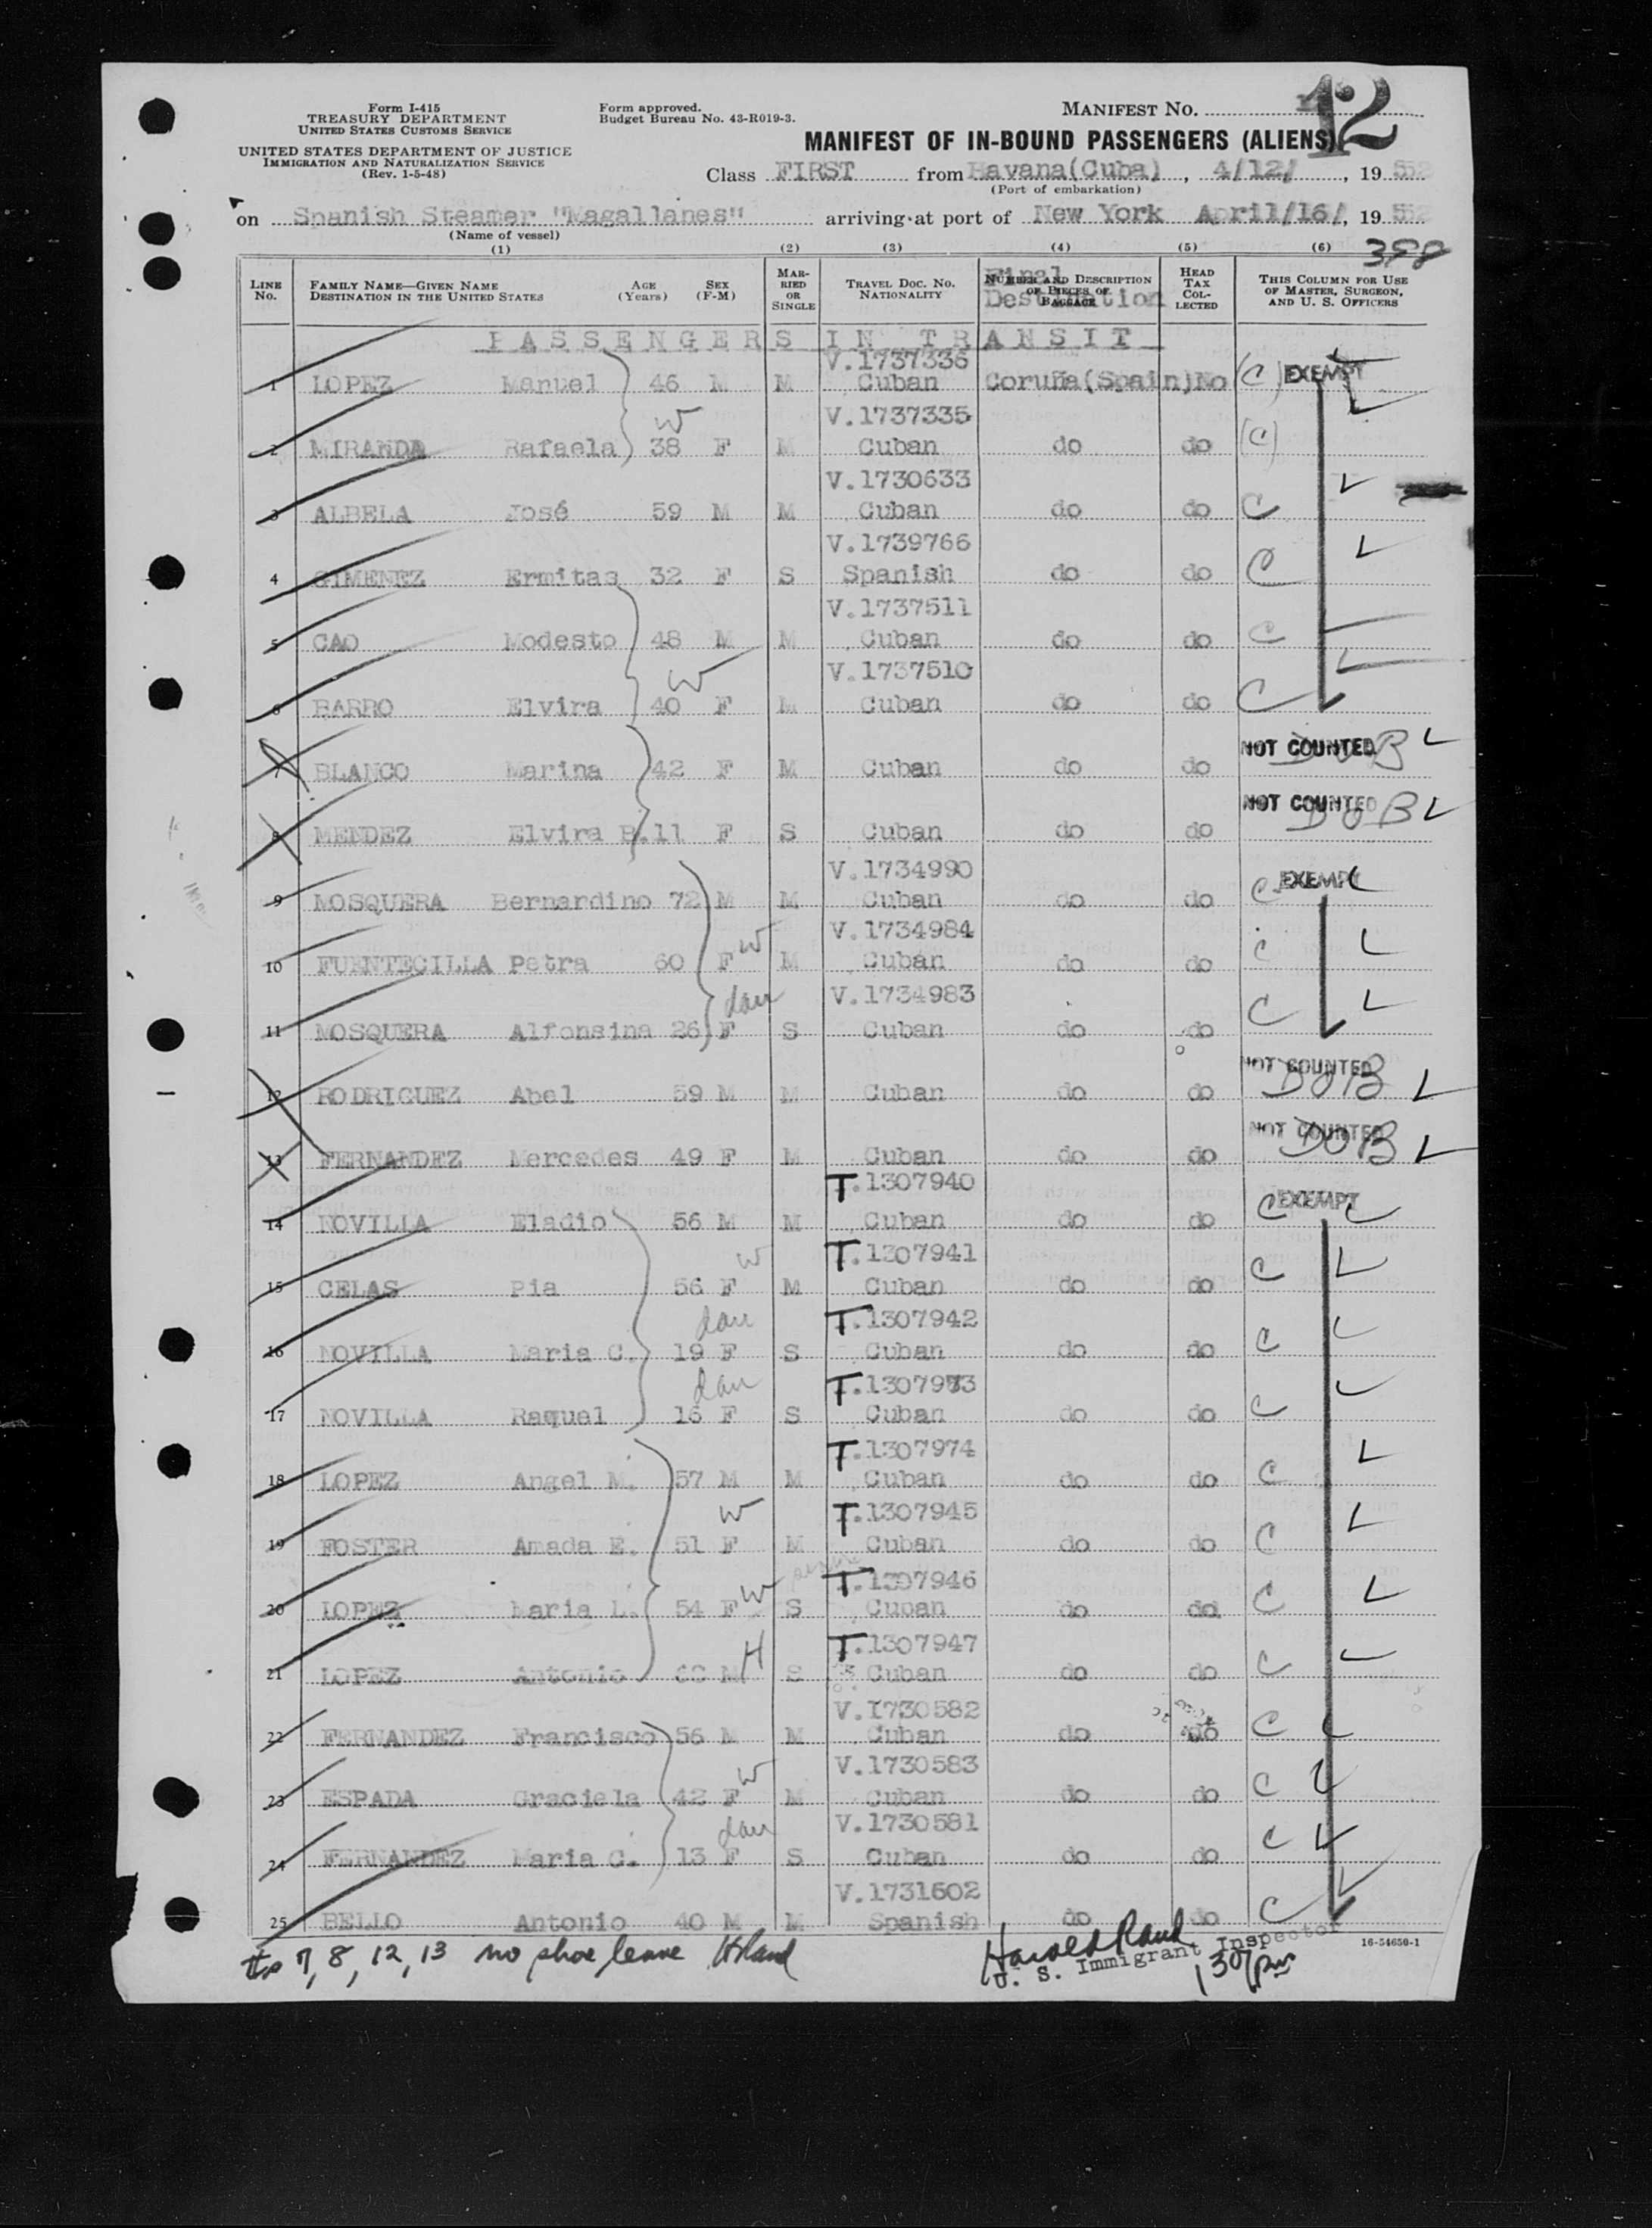 Form I-415
TREASURY DEPARTMENT
UNITED STATES CUSTOMS SERVICE
UNITED STATES DEPARTMENT OF JUSTICE
IMMIGRATION AND NATURALIZATION SERVICE
(Rev. 1-5-48)
Form approved.
Budget Bureau No. 43-R019-3.
MANIFEST NO. 12
MANIFEST OF IN-BOUND PASSENGERS (ALIENS)
Class FIRST from Havana(Cuba), 4/12/, 1952
(Port of embarkation)
on Spanish Steamer "Magallanes" arriving at port of New York April/16/, 1952
(Name of vessel)
(1) (2) (3) (4) (5) (6) 388
LINE No. FAMILY NAME—GIVEN NAME DESTINATION IN THE UNITED STATES AGE (Years) SEX (F-M) MARRIED OR SINGLE TRAVEL DOC. NO. NATIONALITY NUMBER AND DESCRIPTION OF PIECES OF BAGGAGE Final Destination HEAD TAX COLLECTED THIS COLUMN FOR USE OF MASTER, SURGEON, AND U. S. OFFICERS
PASSENGERS IN TRANSIT
V.1737336
1 LOPEZ Manuel 46 M M Cuban Coruña(Spain) No (C) EXEMPT
W V.1737335
2 MIRANDA Rafaela 38 F M Cuban do do (C)
V.1730633
3 ALBELA José 59 M M Cuban do do C
V.1739766
4 GIMENEZ Ermitas 32 F S Spanish do do C
V.1737511
5 CAO Modesto 48 M M Cuban do do C
W V.1737510
6 BARRO Elvira 40 F M Cuban do do C
NOT COUNTED DOB
7 BLANCO Marina 42 F M Cuban do do
NOT COUNTED DOB
8 MENDEZ Elvira B. 11 F S Cuban do do
V.1734990
9 MOSQUERA Bernardino 72 M M Cuban do do C EXEMPT
W V.1734984
10 FUENTECILLA Petra 60 F M Cuban do do C
dau V.1734983
11 MOSQUERA Alfonsina 26 F S Cuban do do C
NOT COUNTED DOB
12 RODRIGUEZ Abel 59 M M Cuban do do
NOT COUNTED DOB
13 FERNANDEZ Mercedes 49 F M Cuban do do
T.1307940
14 NOVILLA Eladio 56 M M Cuban do do C EXEMPT
W T.1307941
15 CELAS Pia 56 F M Cuban do do C
dau T.1307942
16 NOVILLA Maria C. 19 F S Cuban do do C
dau T.1307973
17 NOVILLA Raquel 16 F S Cuban do do C
T.1307974
18 LOPEZ Angel M. 57 M M Cuban do do C
W T.1307945
19 FOSTER Amada E. 51 F M Cuban do do C
W T.1307946
20 LOPEZ Maria L. 54 F S Cuban do do C
H T.1307947
21 LOPEZ Antonio M S Cuban do do C
V.1730582
22 FERNANDEZ Francisco 56 M M Cuban do do C
W V.1730583
23 ESPADA Graciela 42 F M Cuban do do C
dau V.1730581
24 FERNANDEZ Maria C. 13 F S Cuban do do C
V.1731602
25 BELLO Antonio 40 M M Spanish do do C
#s 7, 8, 12, 13 no shore leave HRand
Harold Rand
U. S. Immigrant Inspector
130 pm
16-54650-1